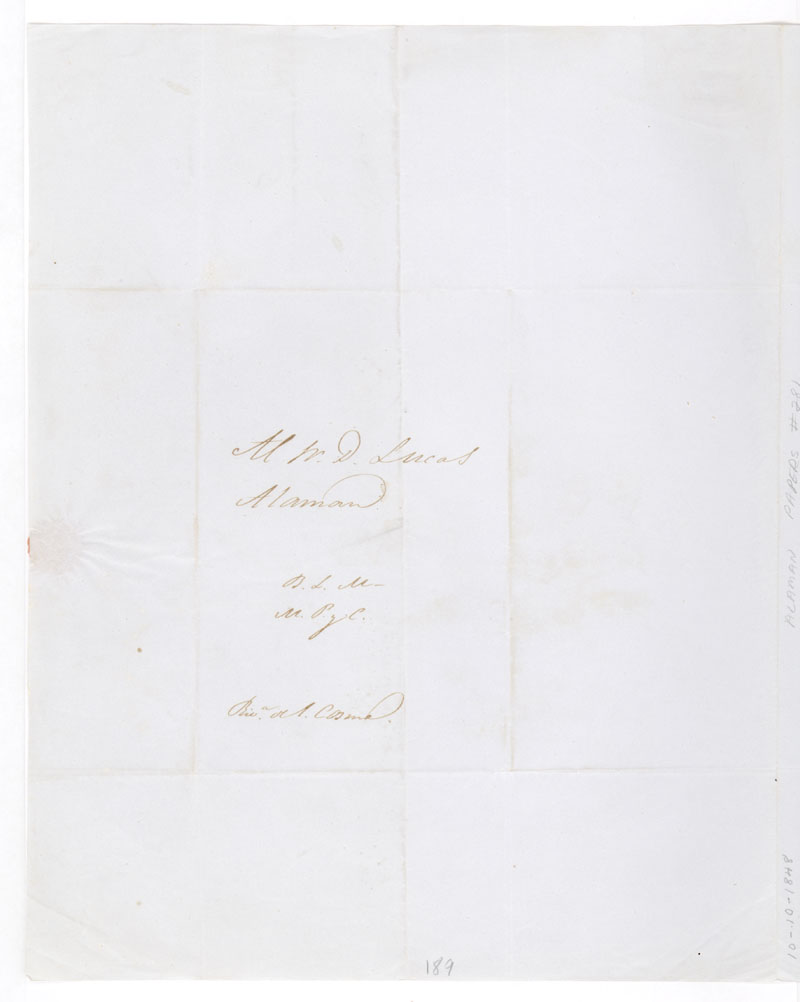 Al Sr. D. Lucas
Alaman
B. L. M.
M. P. y C.
Riv.ª de S. Cosme.
189
ALAMAN PAPERS #281
10-10-1848